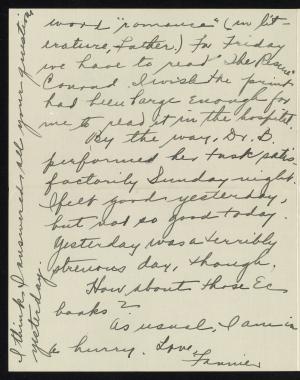 word "romance" (in lit-
erature, Father.) For Friday
we have to read "The Rescue"
Conrad. I wish the print
had been large enough for
me to read it in the hospital.
By the way, Dr. B.
performed her task satis-
factorily Sunday night.
I felt good yesterday,
but not so good today.
Yesterday was a terribly
strenous day, though.
How about those Ec
books?
As usual, I am in
a hurry. Love,
Fannie
I think I answered all your questions
yesterday.